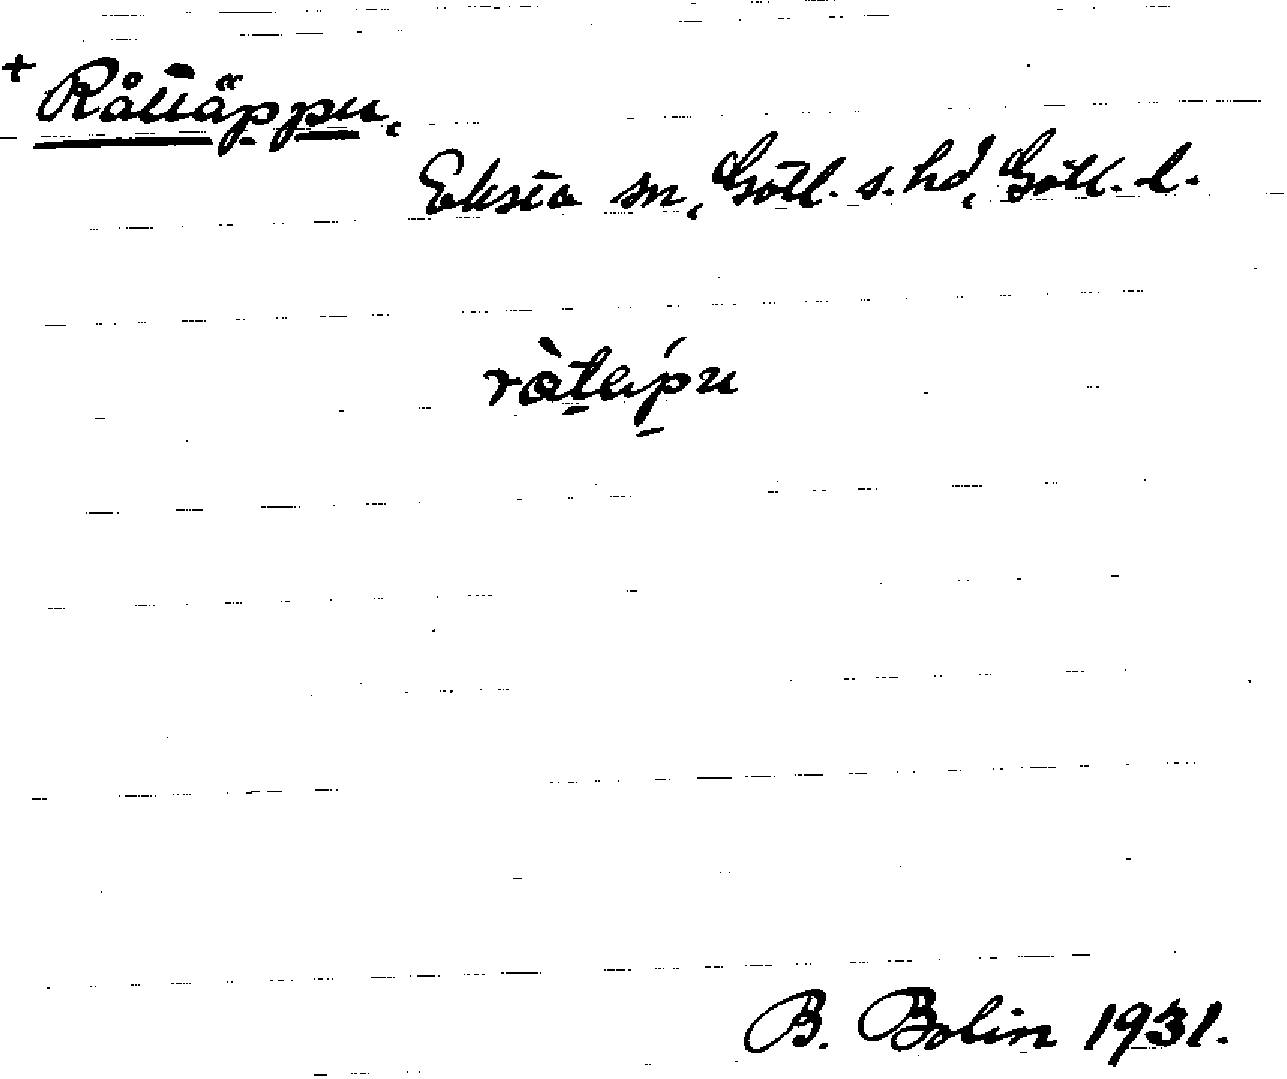 + Råttäppu,
Eksta sn, Gotl. s. hd, Gotl. l.
ràtapu
B. Bolin 1931.